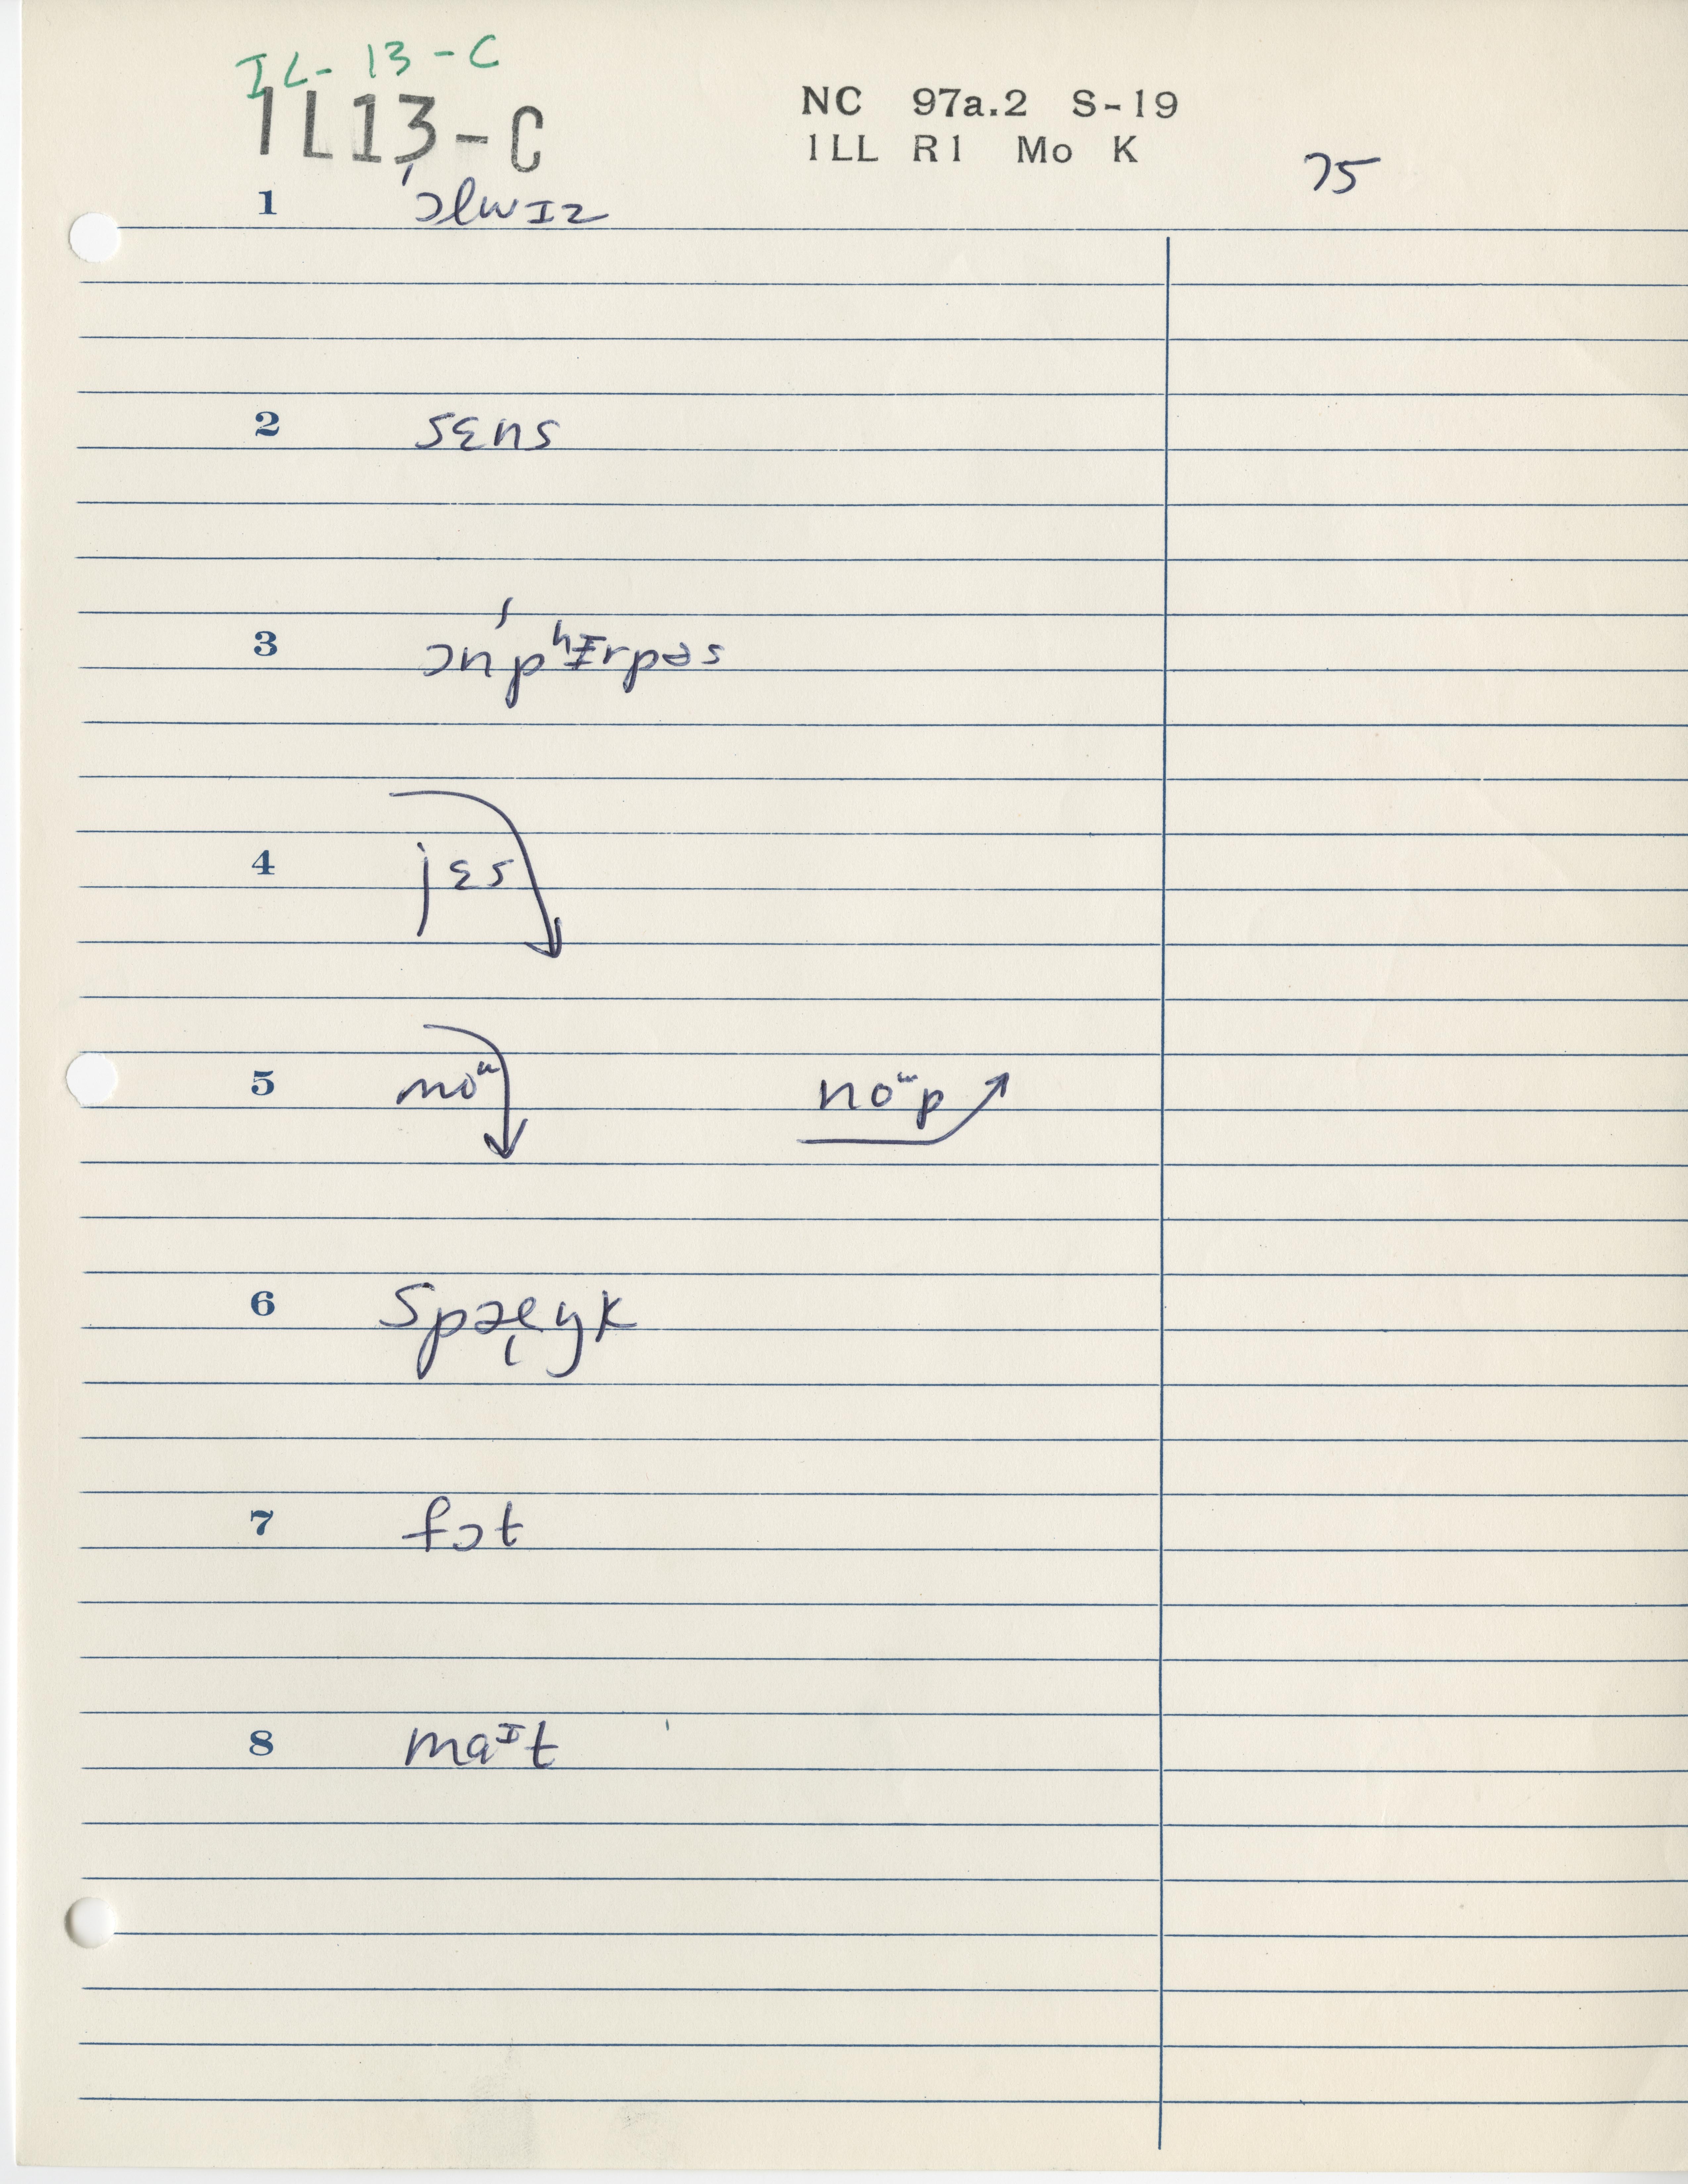 IL-13-C
1L13-C NC 97a.2 S-19
1LL R1 Mo K
75
1 ˈɔlwɪz
2 sɛns
3 ɔnˈpʰɪrpəs
4 jɛs
5 noᵘ noᵘp
6
7 fɔt
8 maᶦt